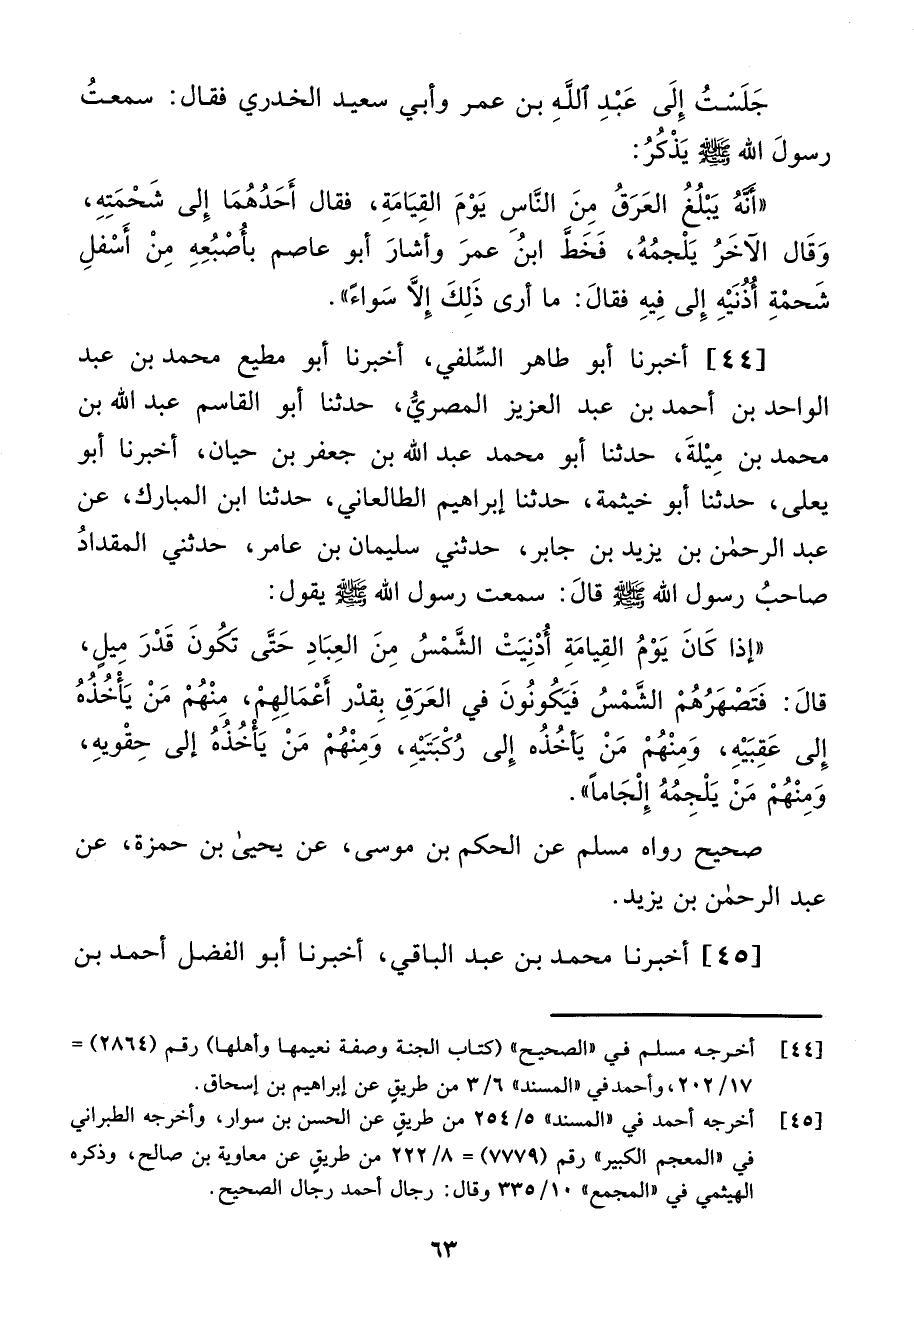 جَلَسْتُ إِلَى عَبْدِ ٱللَّهِ بن عمر وأبي سعيد الخدري فقال: سمعتُ
رسولَ الله ﷺ يَذْكُرُ:
«أَنَّهُ يَبْلُغُ العَرَقُ مِنَ النَّاسِ يَوْمَ القِيَامَةِ، فقال أَحَدُهُمَا إِلى شَحْمَتِهِ،
وَقَال الآخَرُ يَلْجِمُهُ، فَخَطَّ ابنُ عمرَ وأشارَ أبو عاصم بأُصْبُعِهِ مِنْ أَسْفلِ
شَحمْةِ أُذُنَيْهِ إِلى فِيهِ فقالَ: ما أرى ذَلِكَ إِلاَّ سَواءً».
[٤٤] أخبرنا أبو طاهر السِّلفي، أخبرنا أبو مطيع محمد بن عبد
الواحد بن أحمد بن عبد العزيز المصريُّ، حدثنا أبو القاسم عبد الله بن
محمد بن مِيْلةَ، حدثنا أبو محمد عبد الله بن جعفر بن حيان، أخبرنا أبو
يعلى، حدثنا أبو خيثمة، حدثنا إبراهيم الطالعاني، حدثنا ابن المبارك، عن
عبد الرحمٰن بن يزيد بن جابر، حدثني سليمان بن عامر، حدثني المقدادُ
صاحبُ رسول الله ﷺ قالَ: سمعت رسول الله ﷺ يقول:
«إذا كَانَ يَوْمُ القِيامَةِ أُدْنِيَتْ الشَّمْسُ مِنَ العِبَادِ حَتَّى تَكُونَ قَدْرَ مِيلٍ،
قالَ: فَتَصْهَرُهُمْ الشَّمْسُ فَيَكُونُونَ في العَرَقِ بِقدْرِ أَعْمَالِهِمْ، مِنْهُمْ مَنْ يَأْخُذُهُ
إِلى عَقِبَيْهِ، وَمِنْهُمْ مَنْ يَأخُذُه إِلى رُكْبَتَيْهِ، وَمِنْهُمْ مَنْ يَأْخُذُهُ إلى حِقْويهِ،
وَمِنْهُمْ مَنْ يَلْجِمُهُ إِلْجَاماً».
صحيح رواه مسلم عن الحكم بن موسى، عن يحيىٰ بن حمزة، عن
عبد الرحمٰن بن يزيد.
[٤٥] أخبرنا محمد بن عبد الباقي، أخبرنا أبو الفضل أحمد بن
[٤٤] أخرجه مسلم في «الصحيح» (كتاب الجنة وصفة نعيمها وأهلها) رقم (٢٨٦٤) =
٢٠٢/١٧، وأحمد في «المسند» ٣/٦ من طريقٍ عن إبراهيم بن إسحاق.
[٤٥] أخرجه أحمد في «المسند» ٢٥٤/٥ من طريقٍ عن الحسن بن سوار، وأخرجه الطبراني
في «المعجم الكبير» رقم (٧٧٧٩) = ٢٢٢/٨ من طريقٍ عن معاوية بن صالح، وذكره
الهيثمي في «المجمع» ٣٣٥/١٠ وقال: رجال أحمد رجال الصحيح.
٦٣